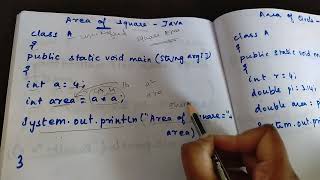 Area of square - Java
class A
{
public static void main (String args[])
{
int a = 4;
int area = a * a;
System.out.println("Area of square = "+
area)
}
Area of Circle -
class A
{
public static
{
int r = 4;
double pi = 3.14
double area =
System.out